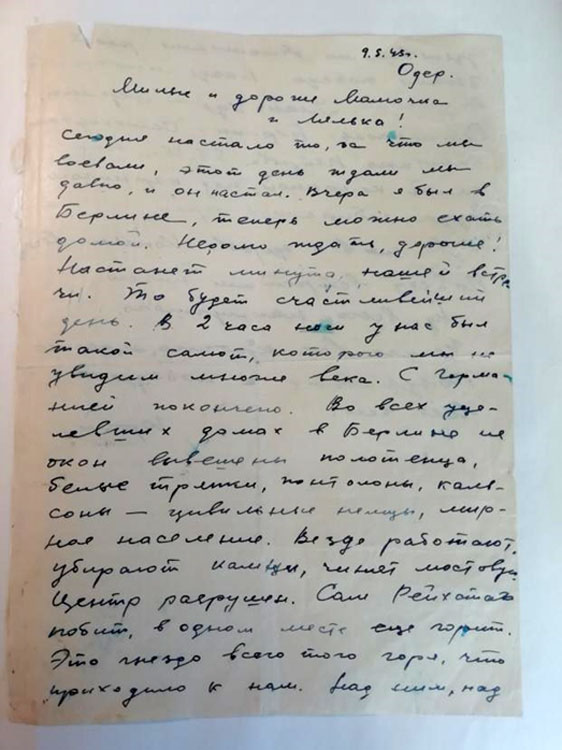 9.5.45г.
Одер.
Милые и дорогие Мамочка
и Милька!
Сегодня настало то, за что мы
воевали, этот день ждали мы
давно, и он настал. Вчера я был в
Берлине, теперь можно ехать
домой. Недолго ждать, дорогие!
Настанет минута нашей встре
чи. То будет счастливейший
день. В 2 часа ночи у нас был
такой салют, которого мы не
увидим многие века. С Герма-
нией покончено. Во всех уце-
левших домах в Берлине из
окон вывешены полотенца,
белые тряпки, понтолоны, каль-
соны — цивильные немцы, мир-
ное население. Везде работают,
убирают камни, чинят мостовую.
Центр разрушен. Сам Рейхстаг
побит, в одном месте еще горит.
Это гнездо всего того горя, что
приходило к нам. Над ним, над